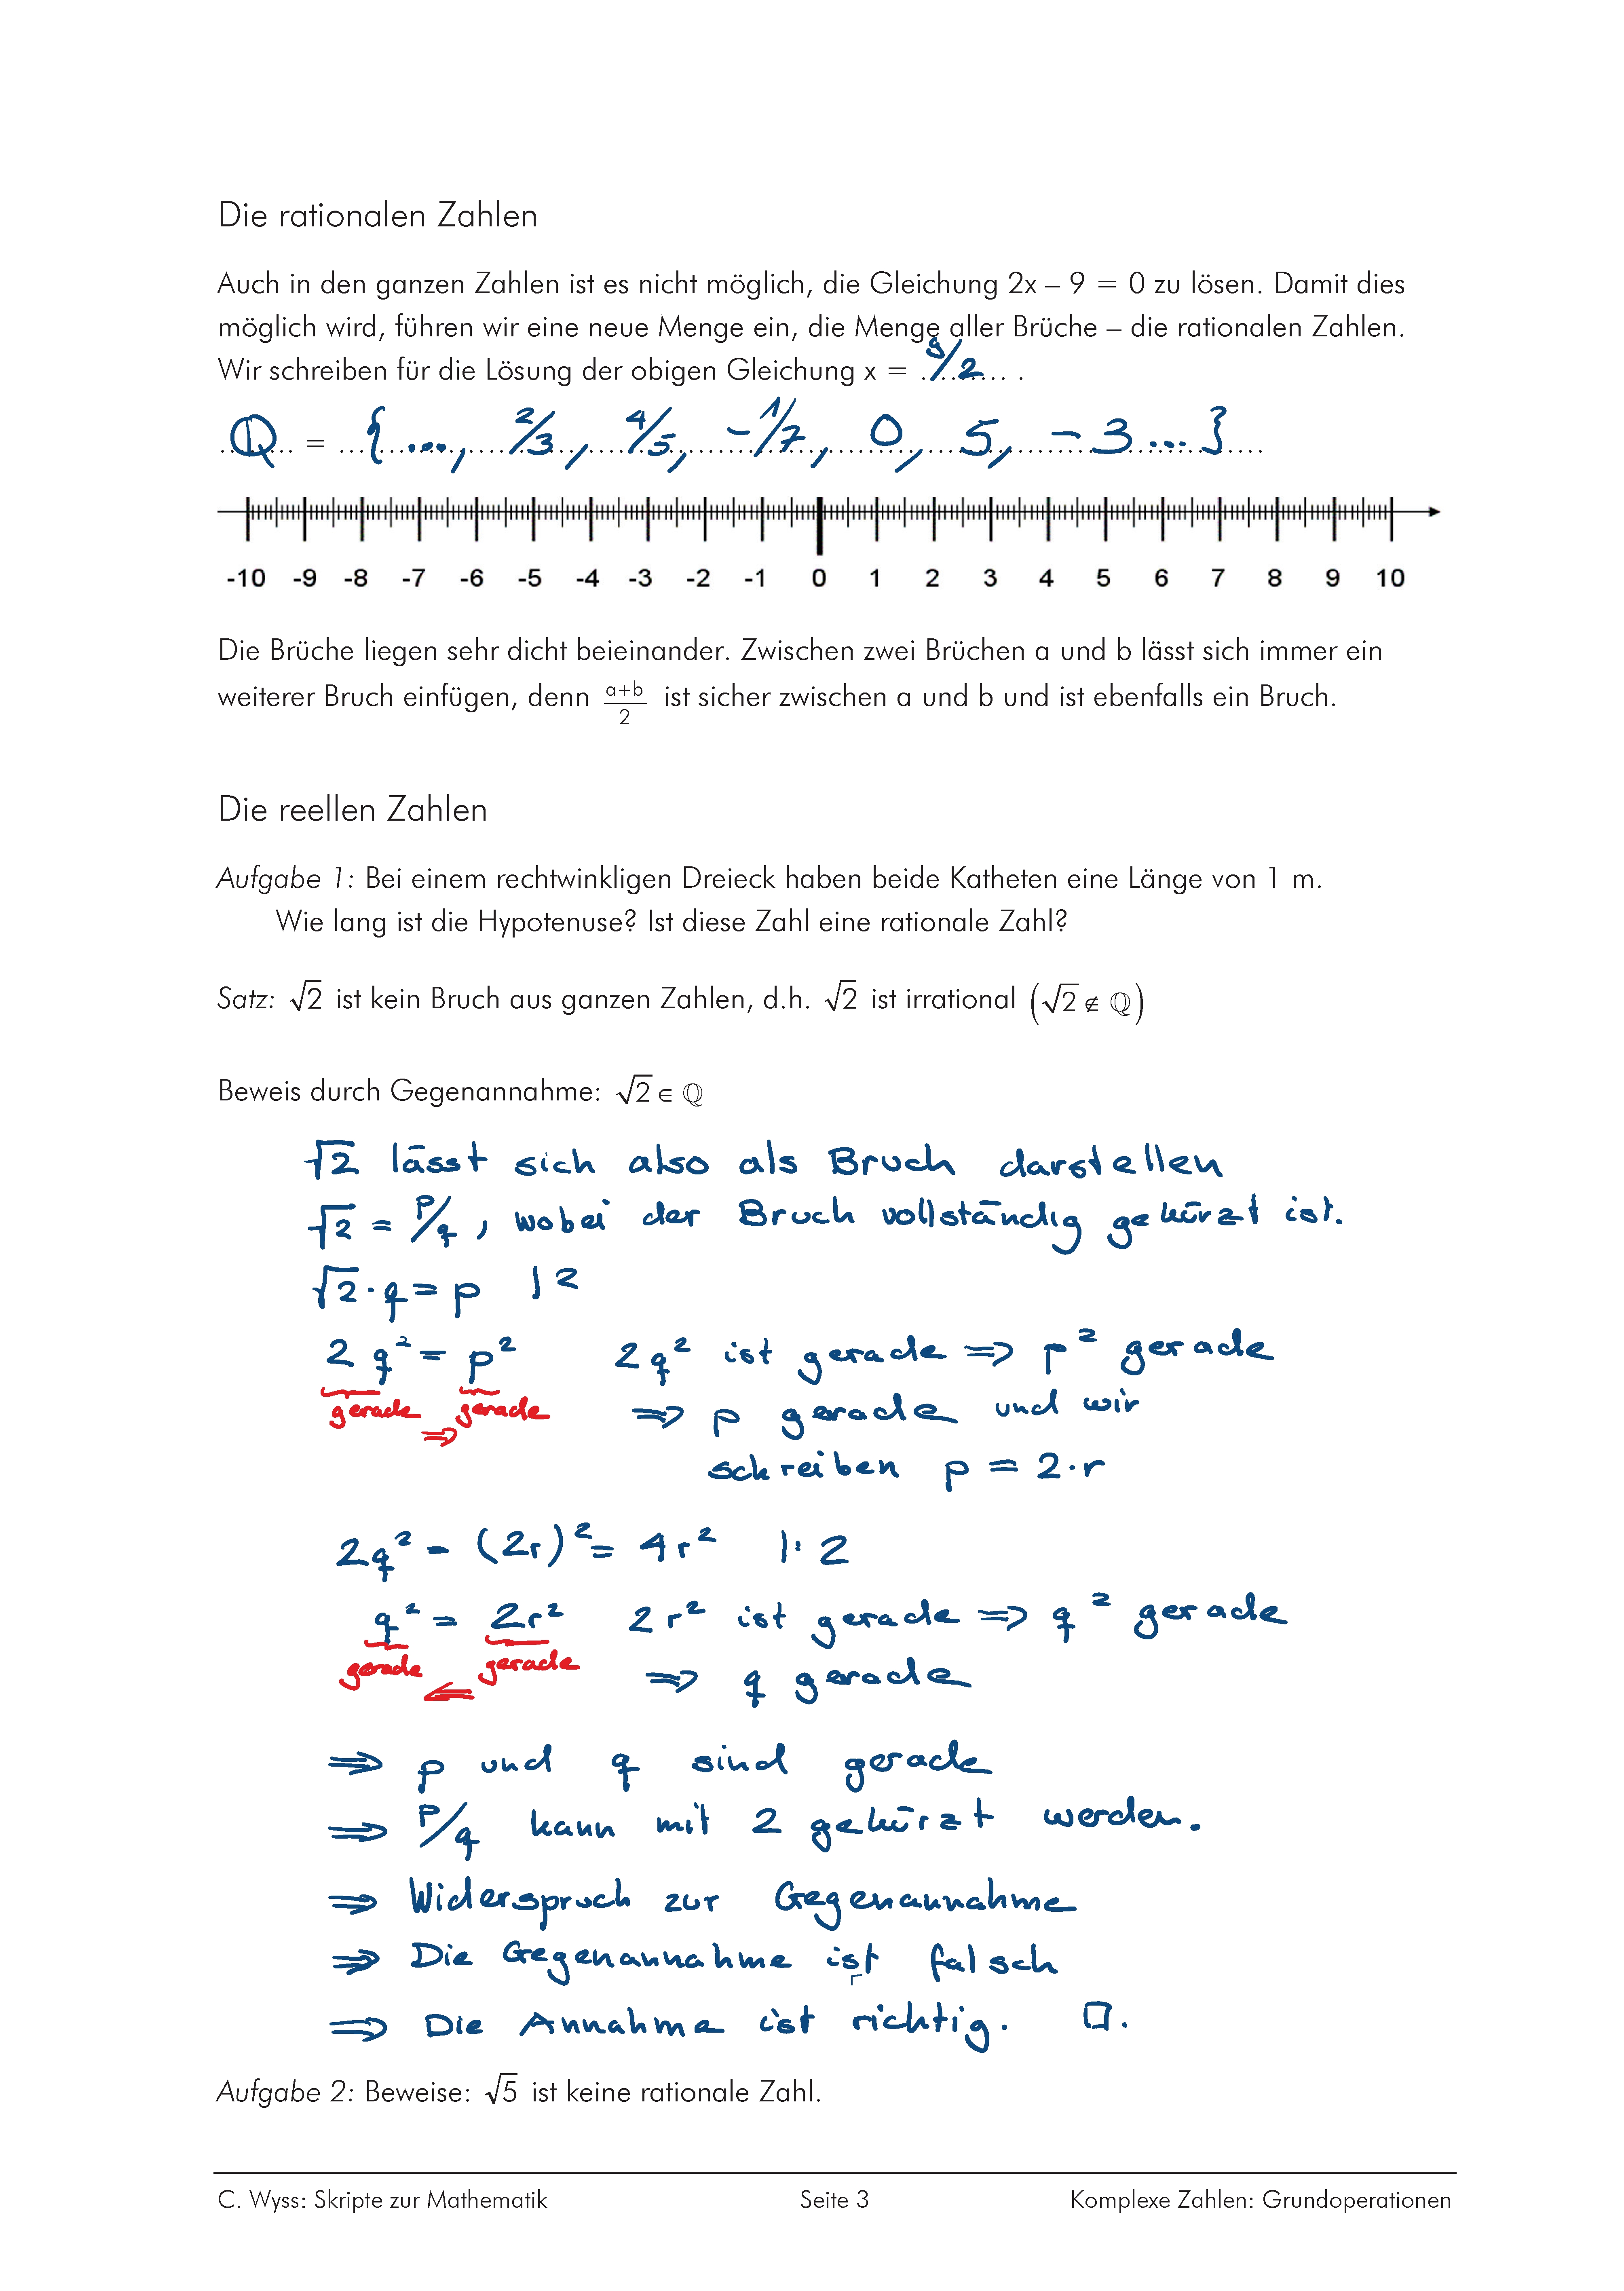 Die rationalen Zahlen
Auch in den ganzen Zahlen ist es nicht möglich, die Gleichung 2x – 9 = 0 zu lösen. Damit dies
möglich wird, führen wir eine neue Menge ein, die Menge aller Brüche – die rationalen Zahlen.
Wir schreiben für die Lösung der obigen Gleichung x = 9/2 .
Q = {..., 2/3, 4/5, -1/7, 0, 5, -3 ...}
-10 -9 -8 -7 -6 -5 -4 -3 -2 -1 0 1 2 3 4 5 6 7 8 9 10
Die Brüche liegen sehr dicht beieinander. Zwischen zwei Brüchen a und b lässt sich immer ein
weiterer Bruch einfügen, denn (a+b)/2 ist sicher zwischen a und b und ist ebenfalls ein Bruch.
Die reellen Zahlen
Aufgabe 1: Bei einem rechtwinkligen Dreieck haben beide Katheten eine Länge von 1 m.
Wie lang ist die Hypotenuse? Ist diese Zahl eine rationale Zahl?
Satz: √2 ist kein Bruch aus ganzen Zahlen, d.h. √2 ist irrational (√2 ∉ ℚ)
Beweis durch Gegenannahme: √2 ∈ ℚ
√2 lässt sich also als Bruch darstellen
√2 = p/q, wobei der Bruch vollständig gekürzt ist.
√2 · q = p |²
2q² = p² 2q² ist gerade ⇒ p² gerade
gerade ⇒ gerade ⇒ p gerade und wir
schreiben p = 2·r
2q² = (2r)² = 4r² |: 2
q² = 2r² 2r² ist gerade ⇒ q² gerade
gerade ⇐ gerade ⇒ q gerade
⇒ p und q sind gerade
⇒ p/q kann mit 2 gekürzt werden.
⇒ Widerspruch zur Gegenannahme
⇒ Die Gegenannahme ist falsch
⇒ Die Annahme ist richtig. □.
Aufgabe 2: Beweise: √5 ist keine rationale Zahl.
C. Wyss: Skripte zur Mathematik Seite 3 Komplexe Zahlen: Grundoperationen